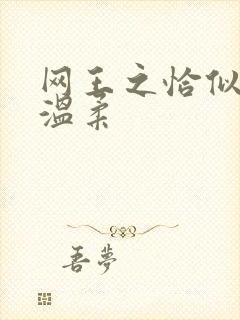 网王之恰似
温柔
吾夢